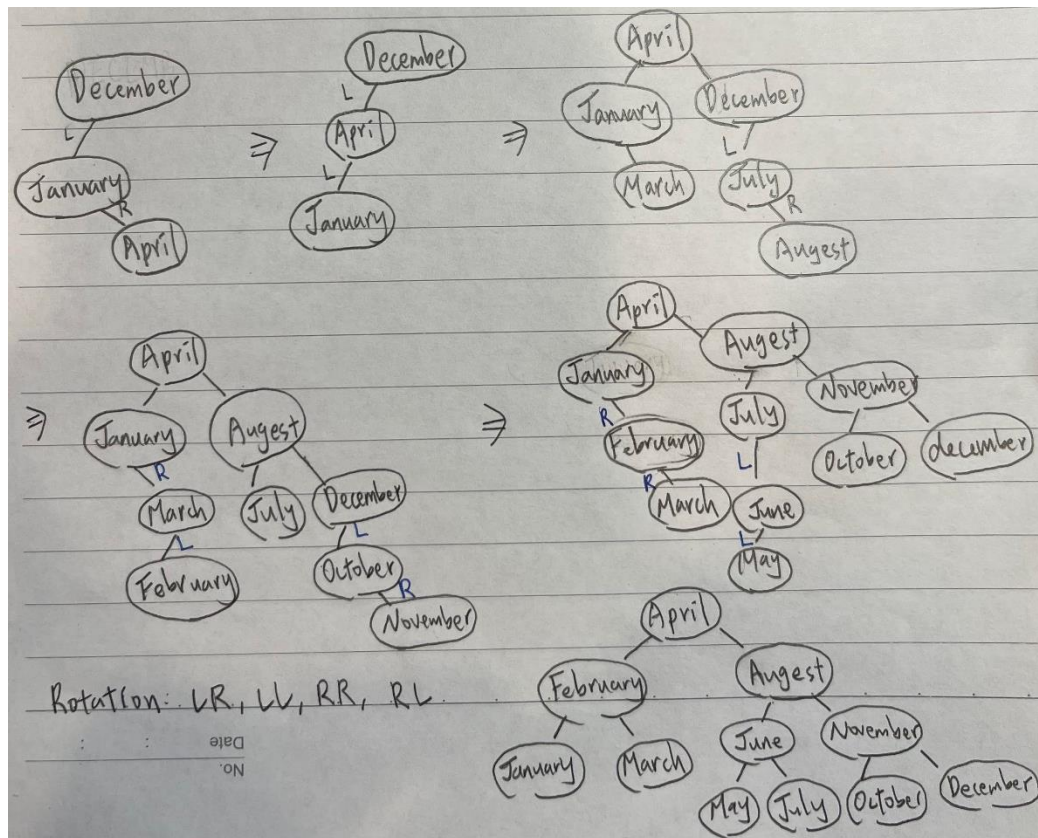 December
L
January
R
April
⇒
December
L
April
L
January
⇒
April
January December
L
March July
R
Augest
⇒
April
January Augest
R
March July December
L L
February October
R
November
⇒
April
January Augest
R July November
February October december
R L
March June
L
May
April
February Augest
January March June November
May July October December
Rotation: LR, LL, RR, RL
Date : :
No.